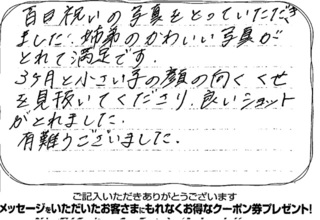 百日祝いの写真をとっていただき
ました。姉弟のかわいい写真が
とれて満足です。
3ヶ月と小さい子の顔の向くくせ
を見抜いてくださり、良いショット
がとれました。
有難うございました。
ご記入いただきありがとうございます
メッセージをいただいたお客さまにもれなくお得なクーポン券プレゼント!